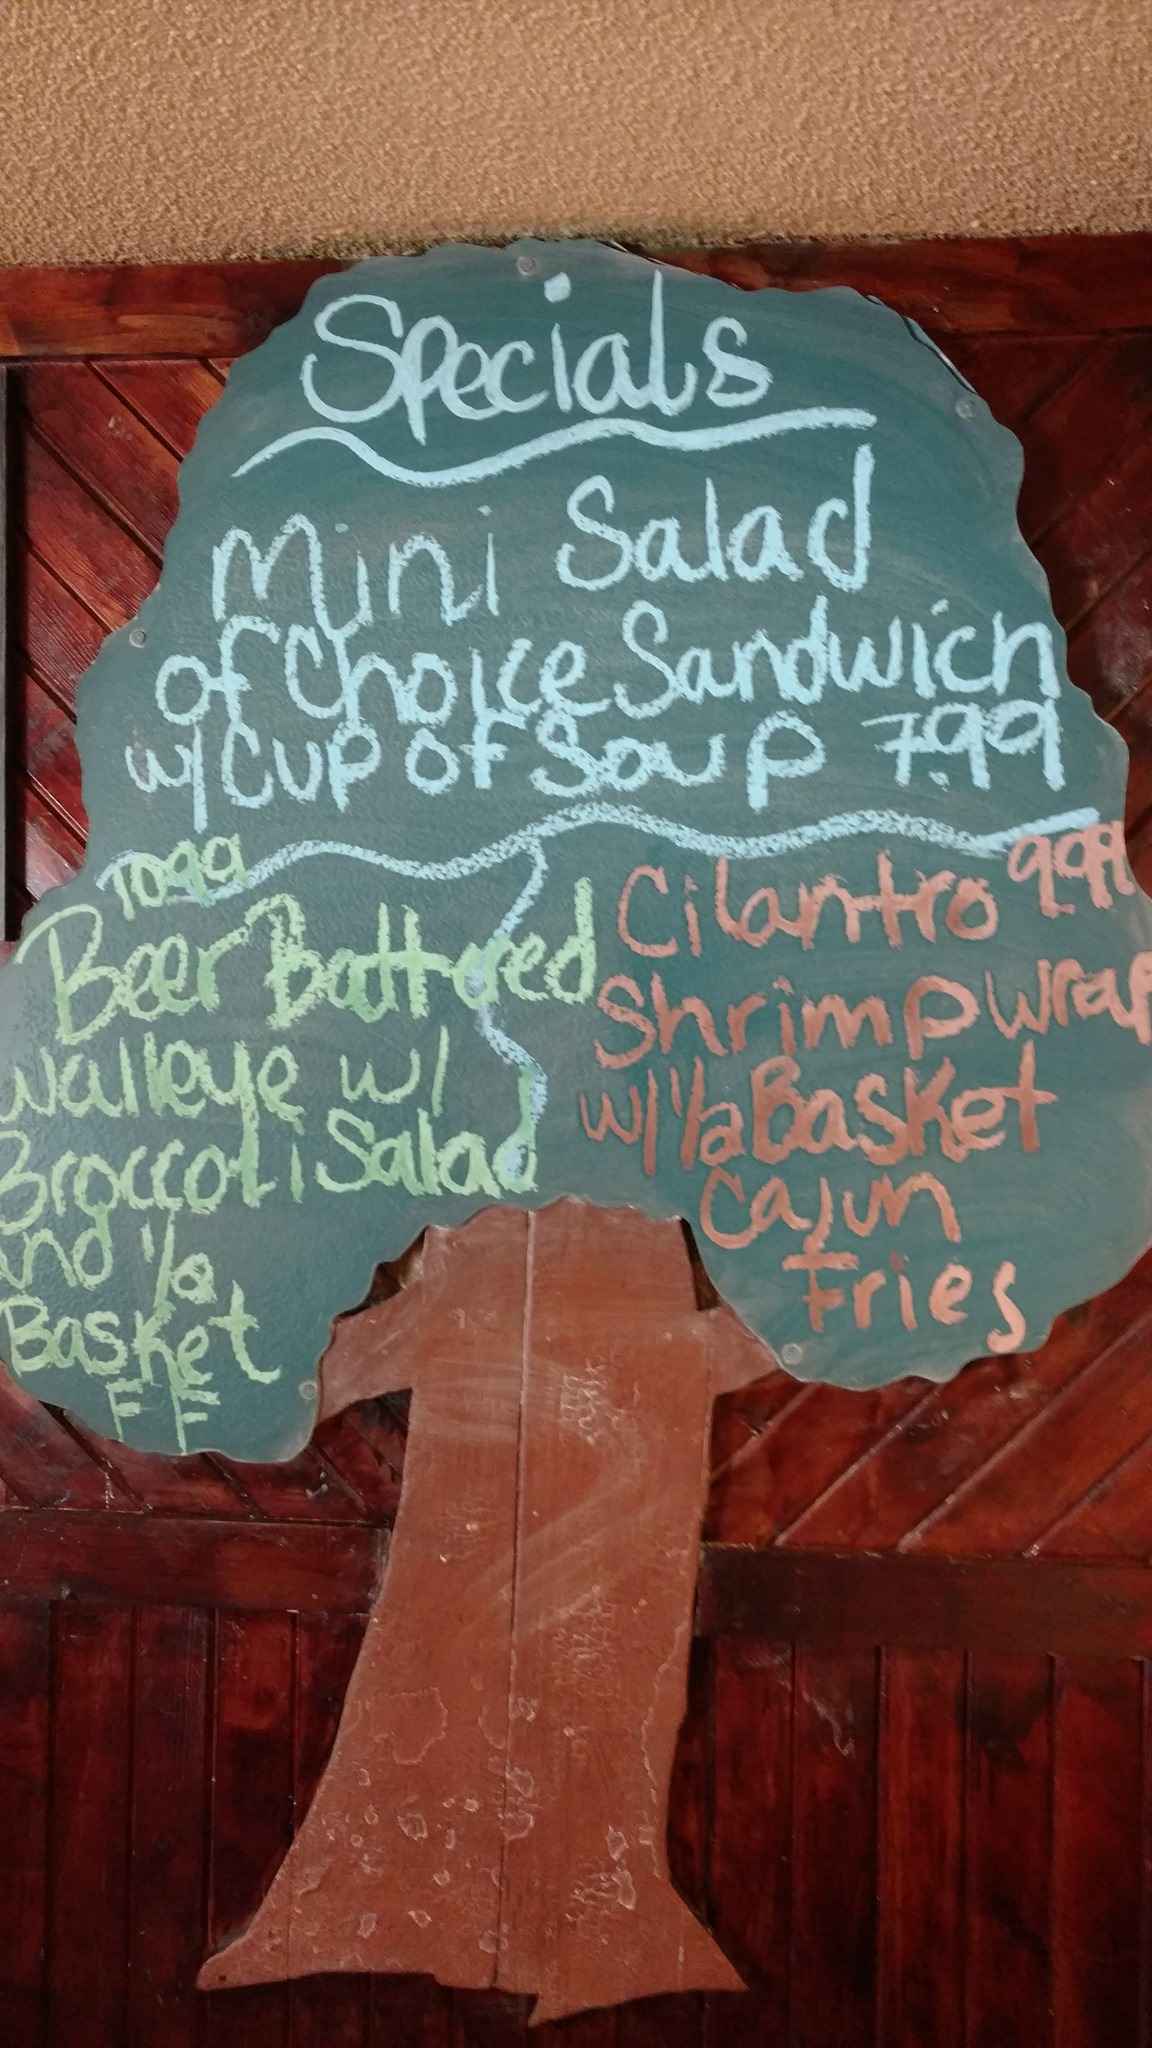 Specials
Mini Salad
of Choice Sandwich
w/ Cup of Soup 7.99
10.99
Beer Battered
Walleye w/
Broccoli Salad
and 1/2
Basket
FF
Cilantro 9.99
Shrimp Wrap
w/ 1/2 Basket
Cajun
Fries